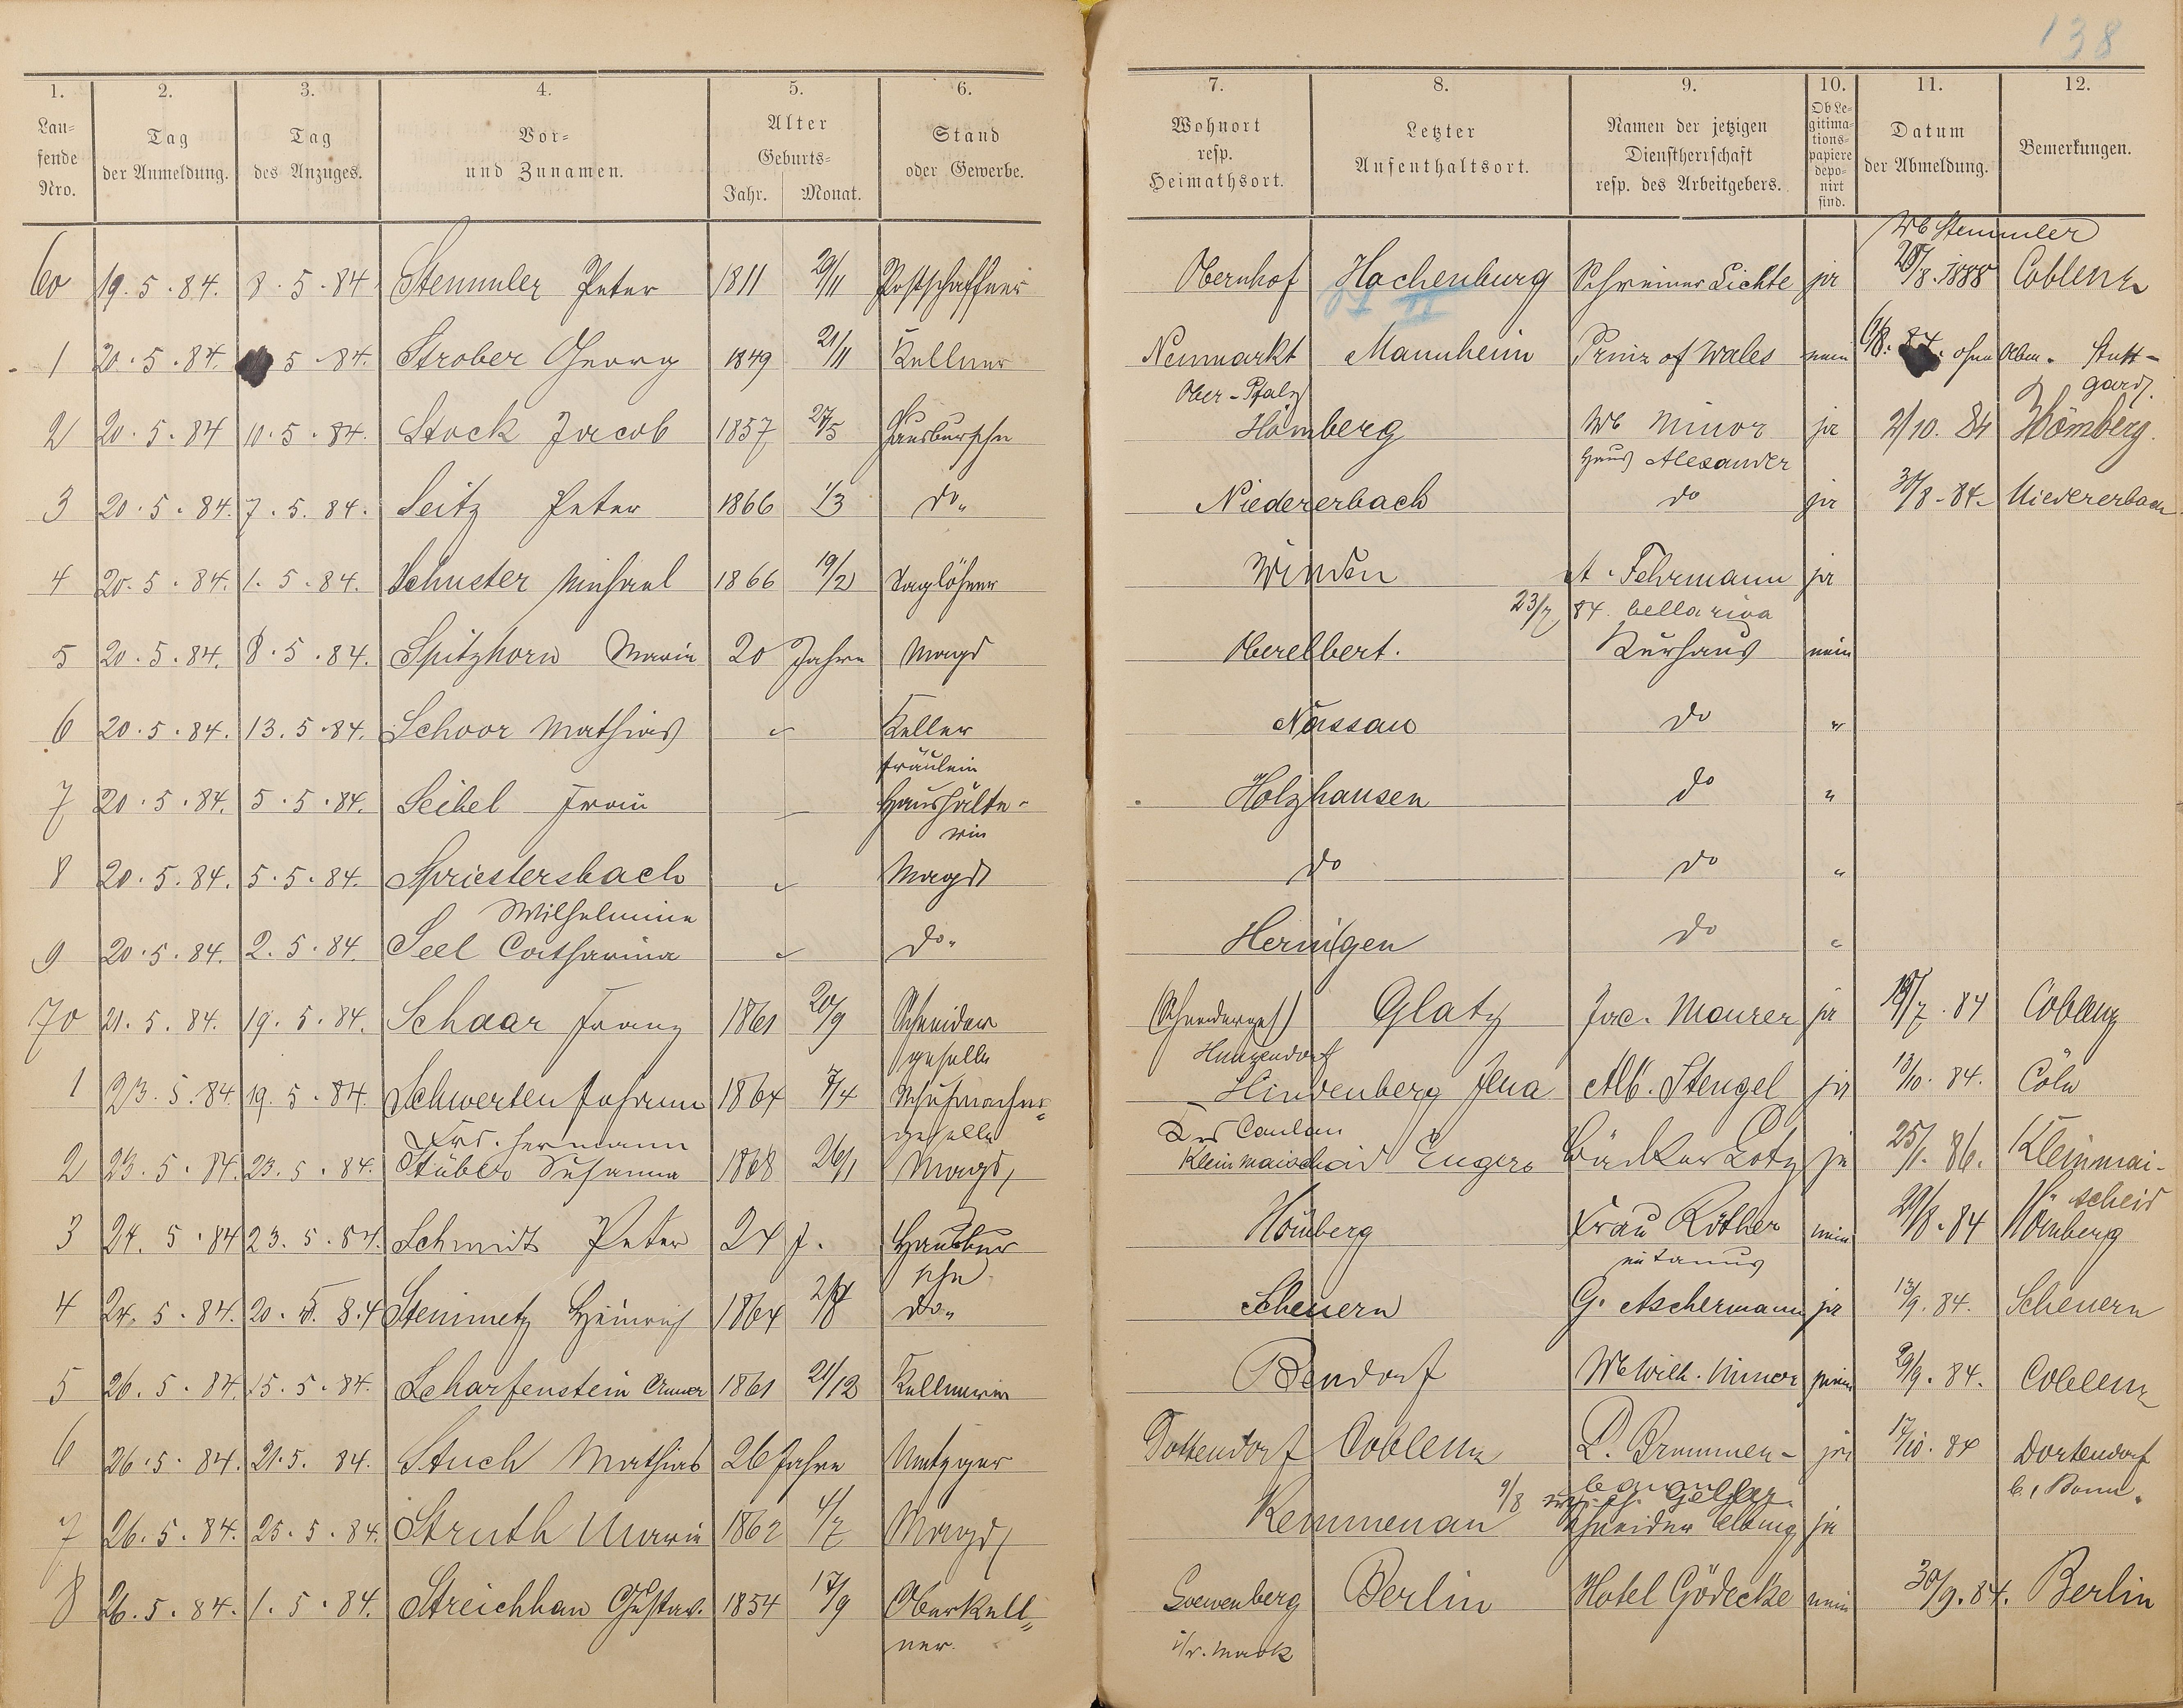 138
1. 2. 3. 4. 5. 6. 7. 8. 9. 10. 11. 12.
Lau=fende Nro. Tag der Anmeldung. Tag des Anzuges. Vor= und Zunamen. Alter Geburts= Jahr. Monat. Stand oder Gewerbe. Wohnort resp. Heimathsort. Letzter Aufenthaltsort. Namen der jetzigen Dienstherrschaft resp. des Arbeitgebers. Ob Le=gitima=tions=papiere depo=nirt sind. Datum der Abmeldung. Bemerkungen.
Wb Stemmler
60 19.5.84. 8.5.84 Stemmler Peter 1811 29/11 Postschaffner Obernhof Hachenburg Schreiner Lichte ja 20/8.1888 Coblenz
1 20.5.84. 5.84. Strober Georg 1849 21/11 Kellner Neumarkt Mannheim Prinz of Wales nein ohne Abm. Stutt-
Ober-Pfalz gard.
2 20.5.84 10.5.84. Stock Jacob 1857 27/5 Hausbursche Hömberg Wb Minor ja 2/10.84 Hömberg.
Haus Alexander
3 20.5.84. 7.5.84. Seitz Peter 1866 1/3 do. Niedererbach do ja 30/8.84. Niedererbach
4 20.5.84. 1.5.84. Schuster Michael 1866 19/2 Taglöhner Winden A. Fehrmann ja
23/7 84. bella riva
5 20.5.84. 8.5.84. Spitzhorn Marie 20 Jahre Magd Oberelbert. Kurhaus nein
6 20.5.84. 13.5.84. Schoor Mathias " Keller Nassau do "
fräulein
7 20.5.84. 5.5.84. Seibel Frau Haushälte- Holzhausen do "
rin
8 20.5.84. 5.5.84. Spriestersbach " Magd do do "
Wilhelmine
9 20.5.84. 2.5.84. Seel Catharina " do. Hernigen do "
70 21.5.84. 19.5.84. Schaar Franz 1861 20/9 Schneider Glatz Jac. Maurer ja 19/7.84 Coblenz
geselle Hunzendorf
1 23.5.84 19.5.84. Schwerten Johann 1864 7/4 Schuhmacher= Hindenberg Jena Alb. Stengel ja 13/10.84. Cöln
Frd. Hermann geselle
2 23.5.84. 23.5.84. Stüber Susanna 1868 26/1 Magd Kleinmaischeid Engers Bäcker Lotz ja 25/1.86. Kleinmai-
scheid
3 24.5.84 23.5.84. Schmidt Peter 24 J. Hausbur Hömberg Frau Röther nein 29/8.84 Hömberg
sche
4 24.5.84. 20.5.84 Steinmetz Heinrich 1864 do. Scheuern G. Aschermann ja 13/9.84. Scheuern
5 26.5.84. 15.5.84. Scharfenstein Anna 1861 21/12 Kellnerin Bendorf Wb Wilh. Minor nein 29/9.84. Coblenz
6 26.5.84. 21.5.84. Stuch Mathias 26 Jahre Metzger Dottendorf Coblenz D. Brummen- ja 17/10.84 Dortendorf
b. Bonn.
7 26.5.84. 25.5.84. Struth Marie 1862 4/7 Magd Kemmenau 9/8 Schneider ja
8 26.5.84. 1.5.84. Streichhan Gustav. 1854 17/9 Oberkell= Loewenberg Berlin Hotel Gödecke nein 30/9.84. Berlin
ner. i/r. Mark